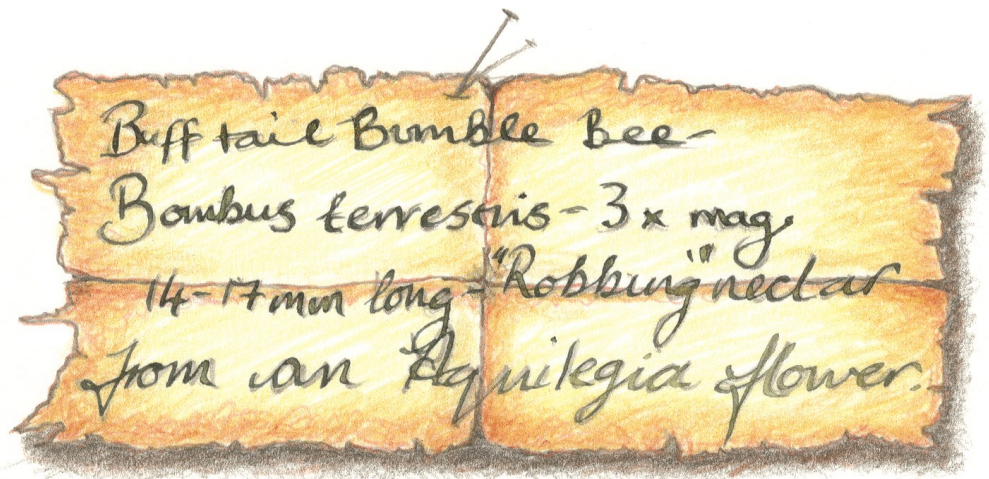 Buff tail Bumble Bee-
Bombus terrestris - 3 x mag.
14-17mm long - "Robbing" nectar
from an Aquilegia flower.